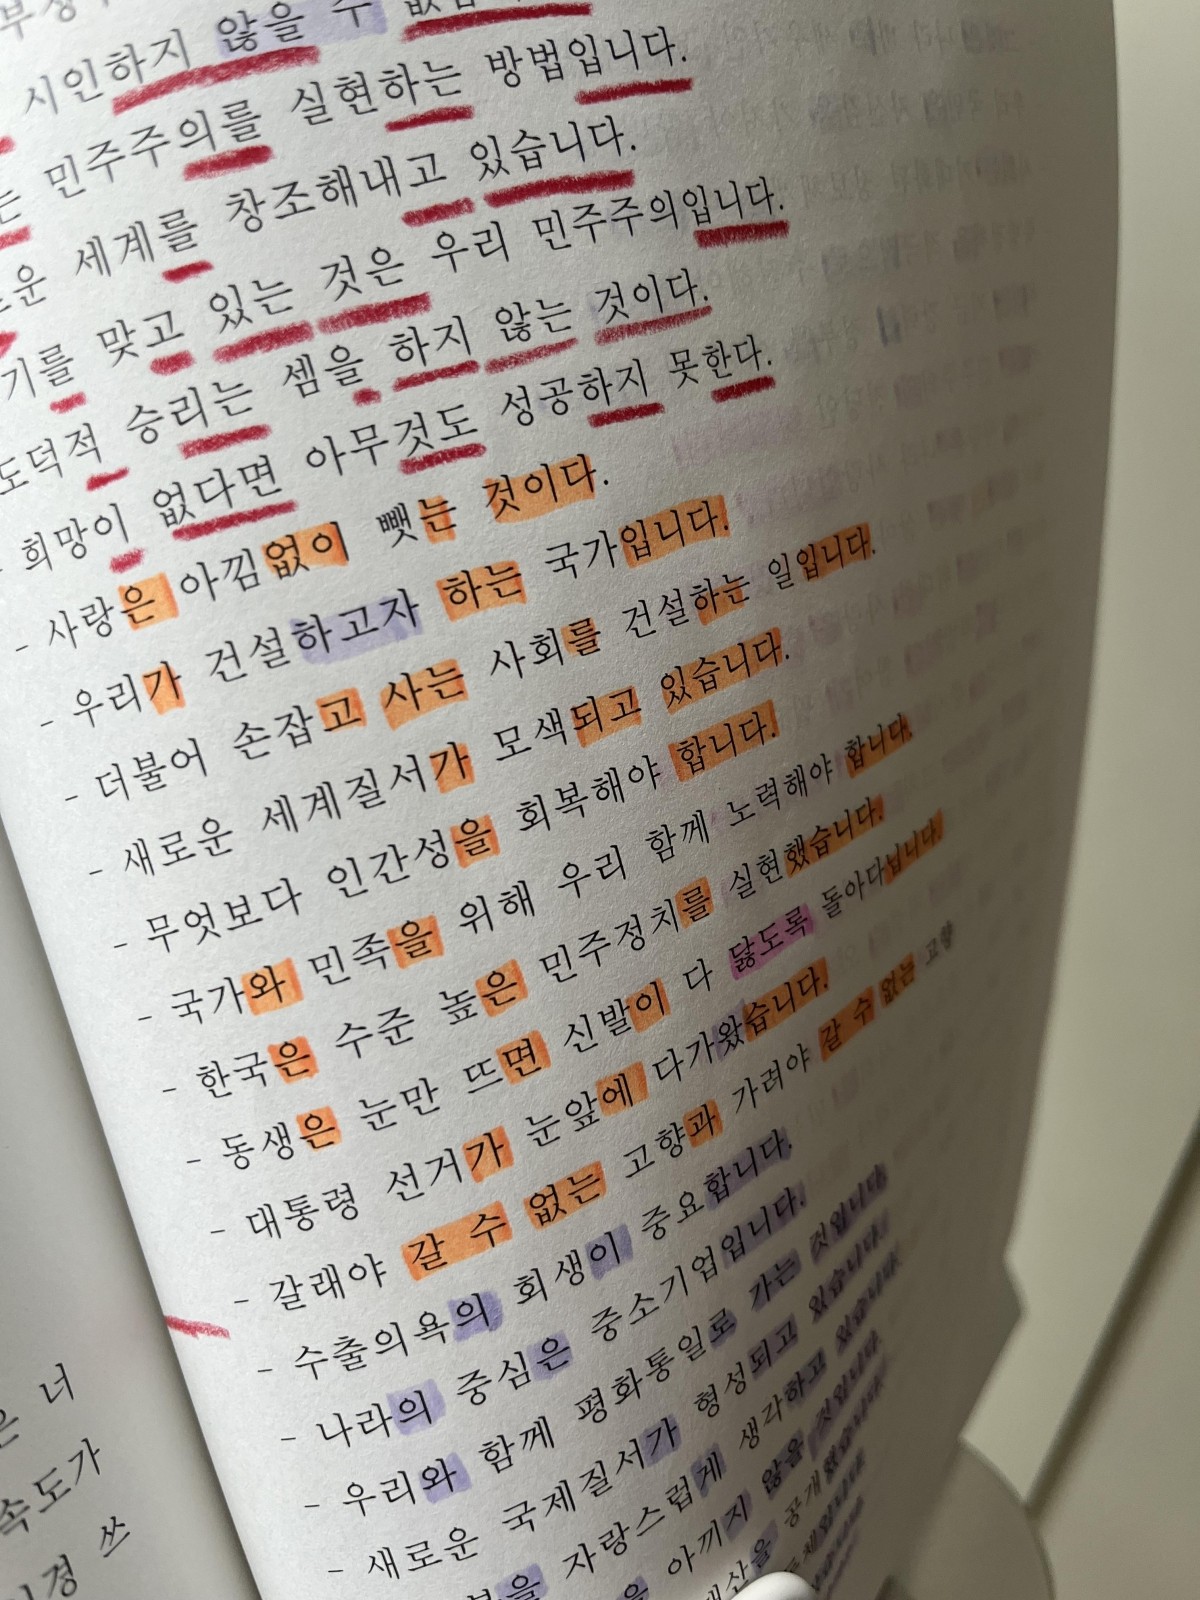 시인하지 않을 수
민주주의를 실현하는 방법입니다.
세계를 창조해내고 있습니다.
기를 맞고 있는 것은 우리 민주주의입니다.
도덕적 승리는 셈을 하지 않는 것이다.
- 희망이 없다면 아무것도 성공하지 못한다.
- 사랑은 아낌없이 뺏는 것이다.
- 우리가 건설하고자 하는 국가입니다.
- 더불어 손잡고 사는 사회를 건설하는 일입니다.
- 새로운 세계질서가 모색되고 있습니다.
- 무엇보다 인간성을 회복해야 합니다.
- 국가와 민족을 위해 우리 함께 노력해야 합니다.
- 한국은 수준 높은 민주정치를 실현했습니다.
- 동생은 눈만 뜨면 신발이 다 닳도록 돌아다닙니다.
- 대통령 선거가 눈앞에 다가왔습니다.
- 갈래야 갈 수 없는 고향과 가려야 갈 수 없는 고향
- 수출의욕의 회생이 중요합니다.
- 나라의 중심은 중소기업입니다.
- 우리와 함께 평화통일로 가는 것입니다.
- 새로운 국제질서가 형성되고 있습니다.
자랑스럽게 생각하고 있습니다.
아끼지 않을 것입니다.
공개했습니다.
너
속도가
쓰